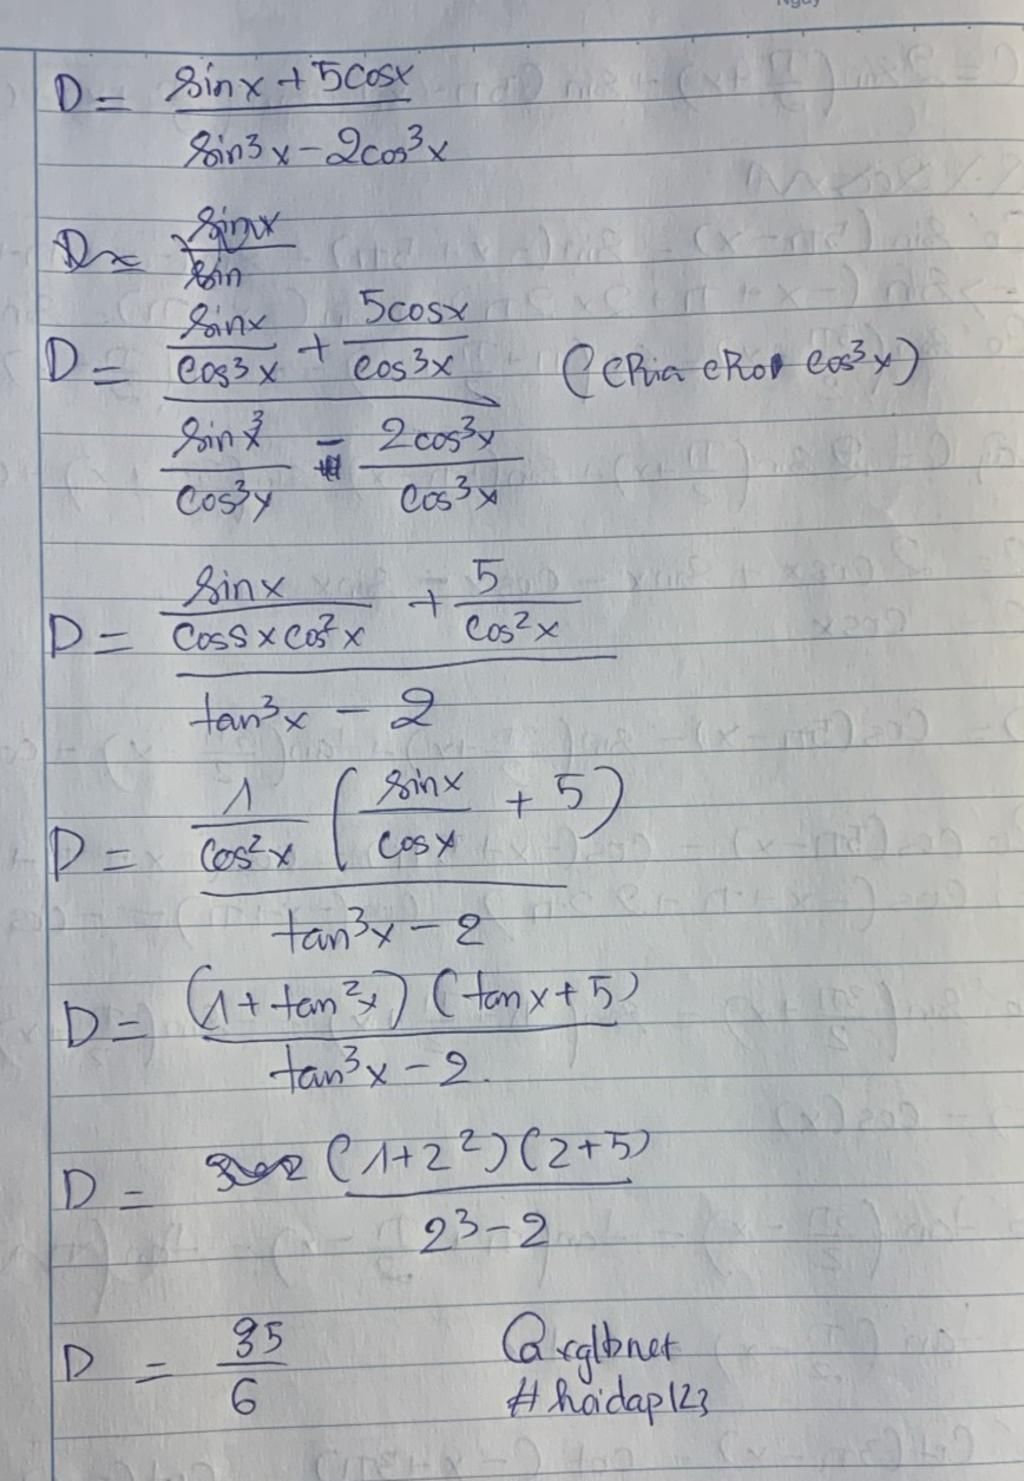 D = (sinx + 5cosx) / (sin3x - 2cos³x)
D = sinx / sin
D = (sinx/cos³x + 5cosx/cos³x) / (sinx³/cos³x - 2cos³x/cos³x) (chia cho cos³x)
D = (sinx/(cosxxcos²x) + 5/cos²x) / (tan³x - 2)
D = 1/cos²x (sinx/cosx + 5) / (tan³x - 2)
D = (1 + tan²x) (tanx + 5) / (tan³x - 2.)
D = (1+2²)(2+5) / (2³-2)
D = 35/6
@rglbnet
#hoidap123